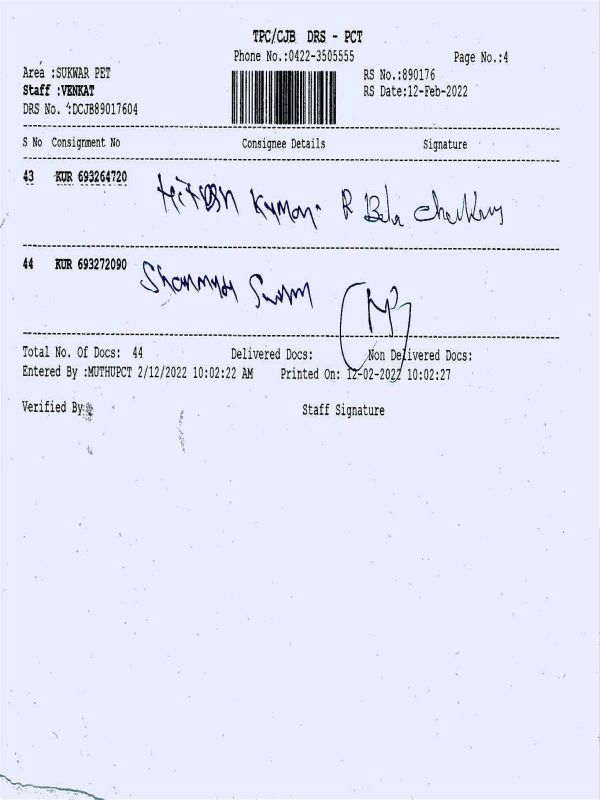 TPC/CJB DRS - PCT
Phone No.:0422-3505555 Page No.:4
Area :SUKWAR PET RS No.:890176
Staff :VENKAT RS Date:12-Feb-2022
DRS No. :DCJB89017604
S No Consignment No Consignee Details Signature
43 KUR 693264720 Kumar R
44 KUR 693272090
Total No. Of Docs: 44 Delivered Docs: Non Delivered Docs:
Entered By :MUTHUPCT 2/12/2022 10:02:22 AM Printed On: 12-02-2022 10:02:27
Verified By: Staff Signature